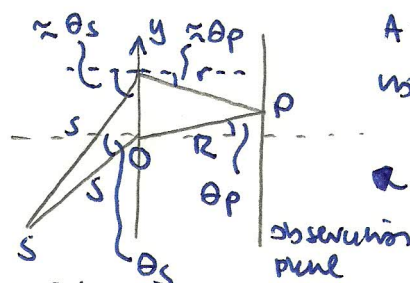 ≈θs
y
≈θp
A
r
s
P
O
R
s
θp
S
θs
observation
plane